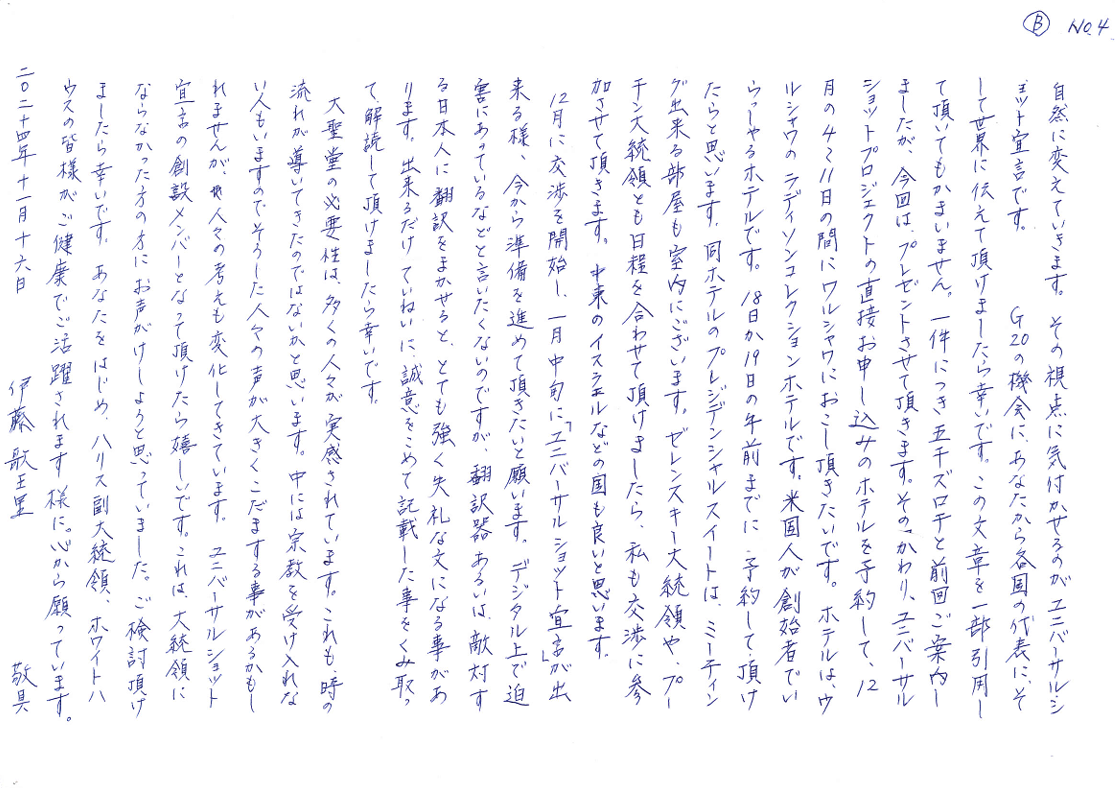 Ⓑ No.4
自然に変えていきます。その視点に気付かせるのがユニバーサルシ
ョット宣言です。 G20の機会に、あなたから各国の代表に、そ
して世界に伝えて頂けましたら幸いです。この文章を一部引用し
て頂いてもかまいません。一件につき五千ズロチと前回ご案内し
ましたが、今回は、プレゼントさせて頂きます。そのかわり、ユニバーサル
ショットプロジェクトの直接お申し込みのホテルを予約して、12
月の4〜11日の間にワルシャワにおこし頂きたいです。ホテルは、ワ
ルシャワのラディソンコレクションホテルです。米国人が創始者でい
らっしゃるホテルです。18日か19日の午前までに予約して頂け
たらと思います。同ホテルのプレジデンシャルスイートは、ミーティン
グ出来る部屋も室内にございます。ゼレンスキー大統領や、プー
チン大統領とも日程を合わせて頂けましたら、私も交渉に参
加させて頂きます。中東のイスラエルなどの国も良いと思います。
12月に交渉を開始し、一月中旬に「ユニバーサルショット宣言」が出
来る様、今から準備を進めて頂きたいと願います。デジタル上で迫
害にあっているなどと言いたくないのですが、翻訳器あるいは、敵対す
る日本人に翻訳をまかせると、とても強く失礼な文になる事があ
ります。出来るだけていねいに、誠意をこめて記載した事をくみ取っ
て、解読して頂けましたら幸いです。
大聖堂の必要性は、多くの人々が実感されています。これも、時の
流れが導いてきたのではないかと思います。中には宗教を受け入れな
い人もいますのでそうした人々の声が大きくこだまする事があるかもし
れませんが、人々の考えも変化してきています。ユニバーサルショット
宣言の創設メンバーとなって頂けたら嬉しいです。これは、大統領に
ならなかった方の方にお声がけしようと思っていました。ご検討頂け
ましたら幸いです。あなたをはじめ、ハリス副大統領、ホワイトハ
ウスの皆様がご健康でご活躍されます様に。心から願っています。
二〇二十四年十一月十六日 伊藤歌王里 敬具